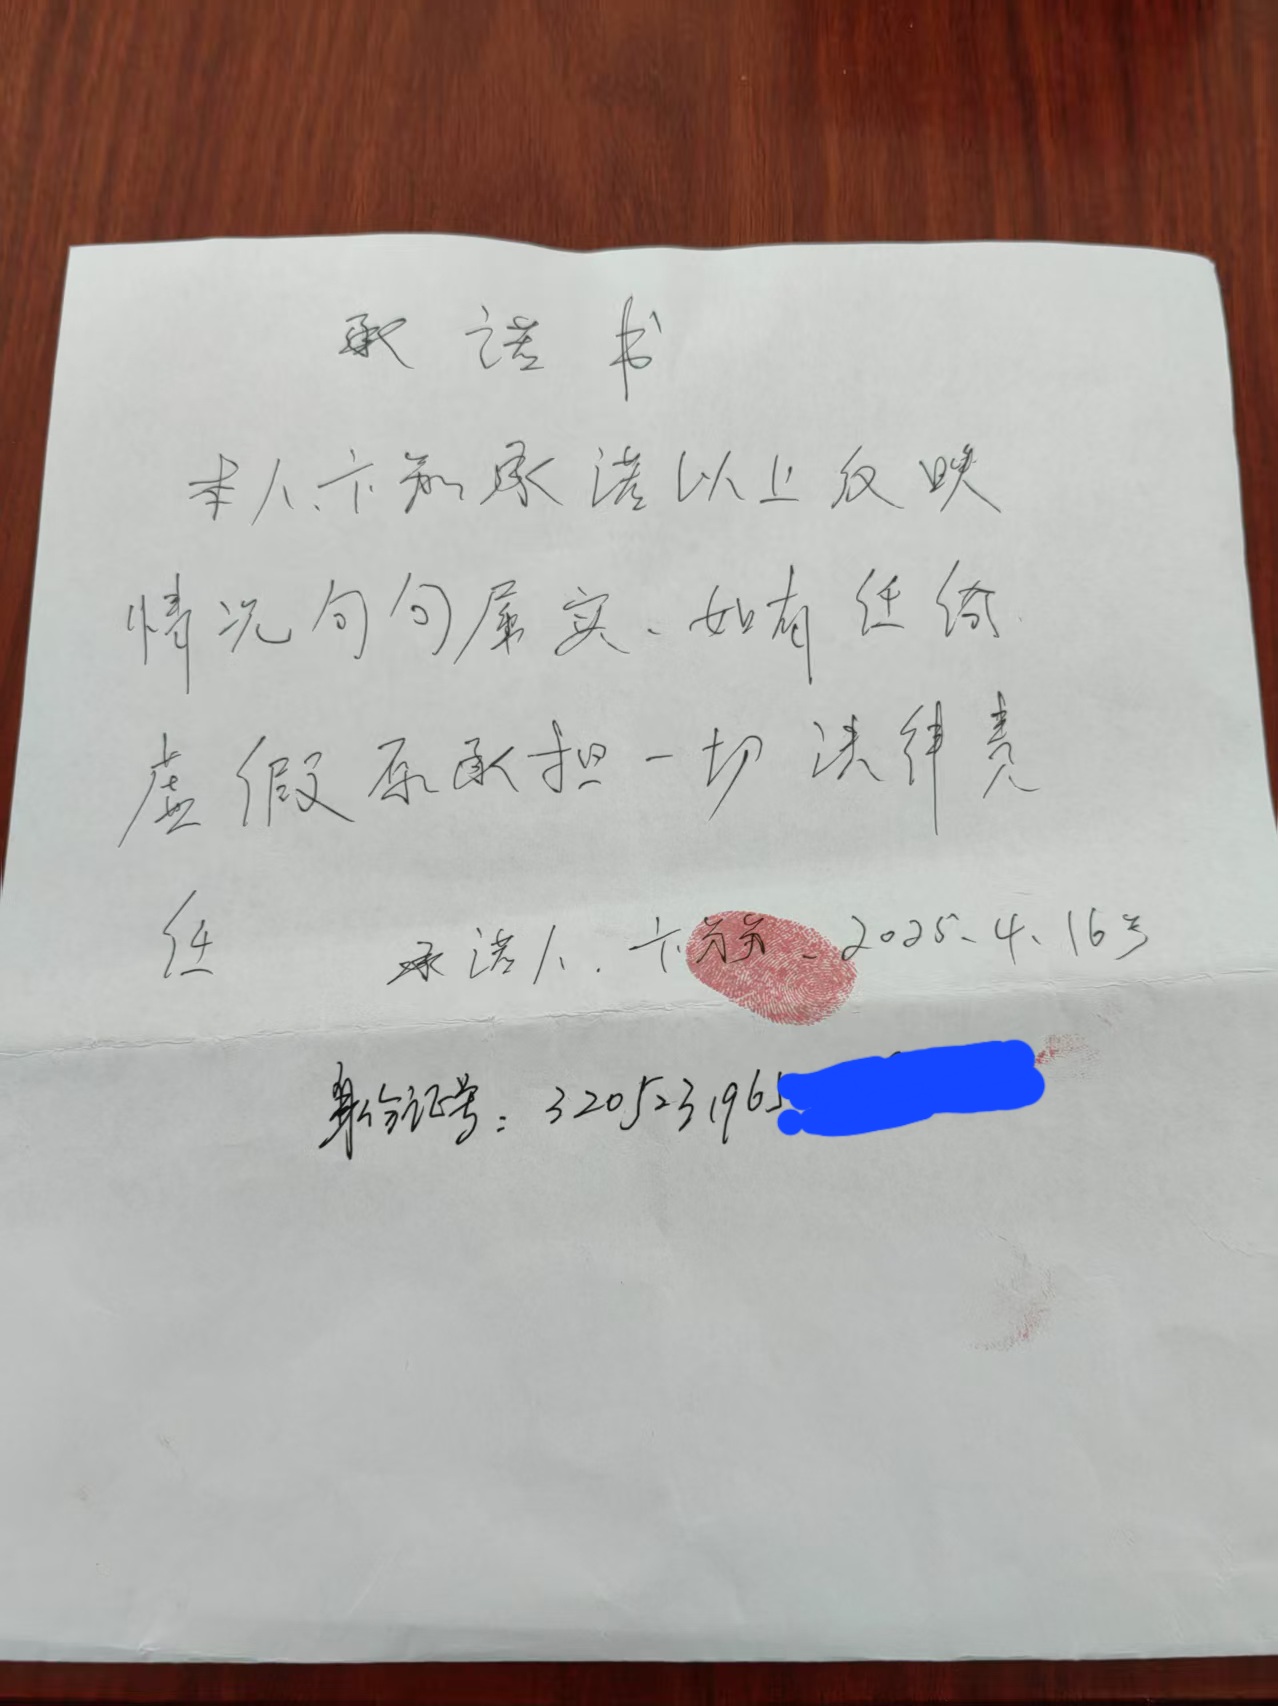 承诺书
本人卞 承诺以上反映
情况句句属实、如有任何
虚假愿承担一切法律责
任 承诺人、卞 、2025、4、16号
身份证号：320523196